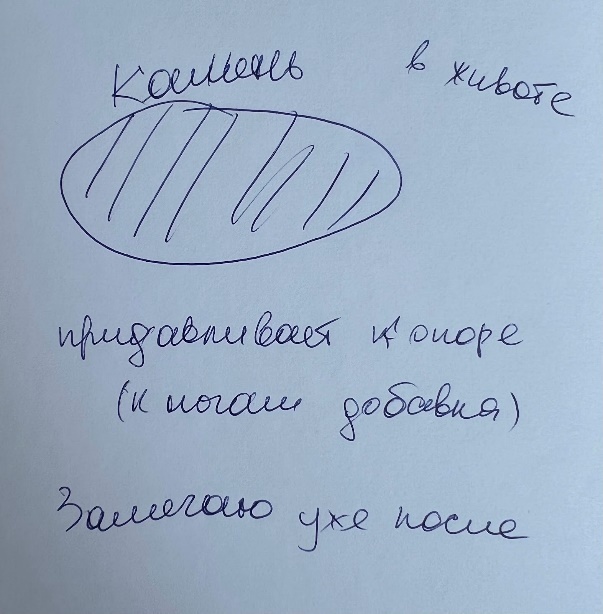 Камень в животе
придавливает к опоре
(к ногам добавка)
Замечаю уже после